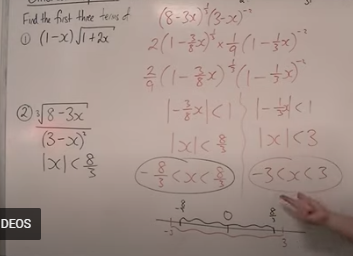 Find the first three terms of
① (1-x)√1+2x
② ∛8-3x
(3-x)²
|x| < 8/3
(8-3x)^⅓ (3-x)^-2
2(1-3/8x)^⅓ × 1/9(1-⅓x)^-2
2/9(1-3/8x)^⅓(1-⅓x)^-2
|-3/8x| < 1
|x| < 8/3
-8/3 < x < 8/3
|-⅓x| < 1
|x| < 3
-3 < x < 3
-8/3 0 8/3
-3 3
DEOS